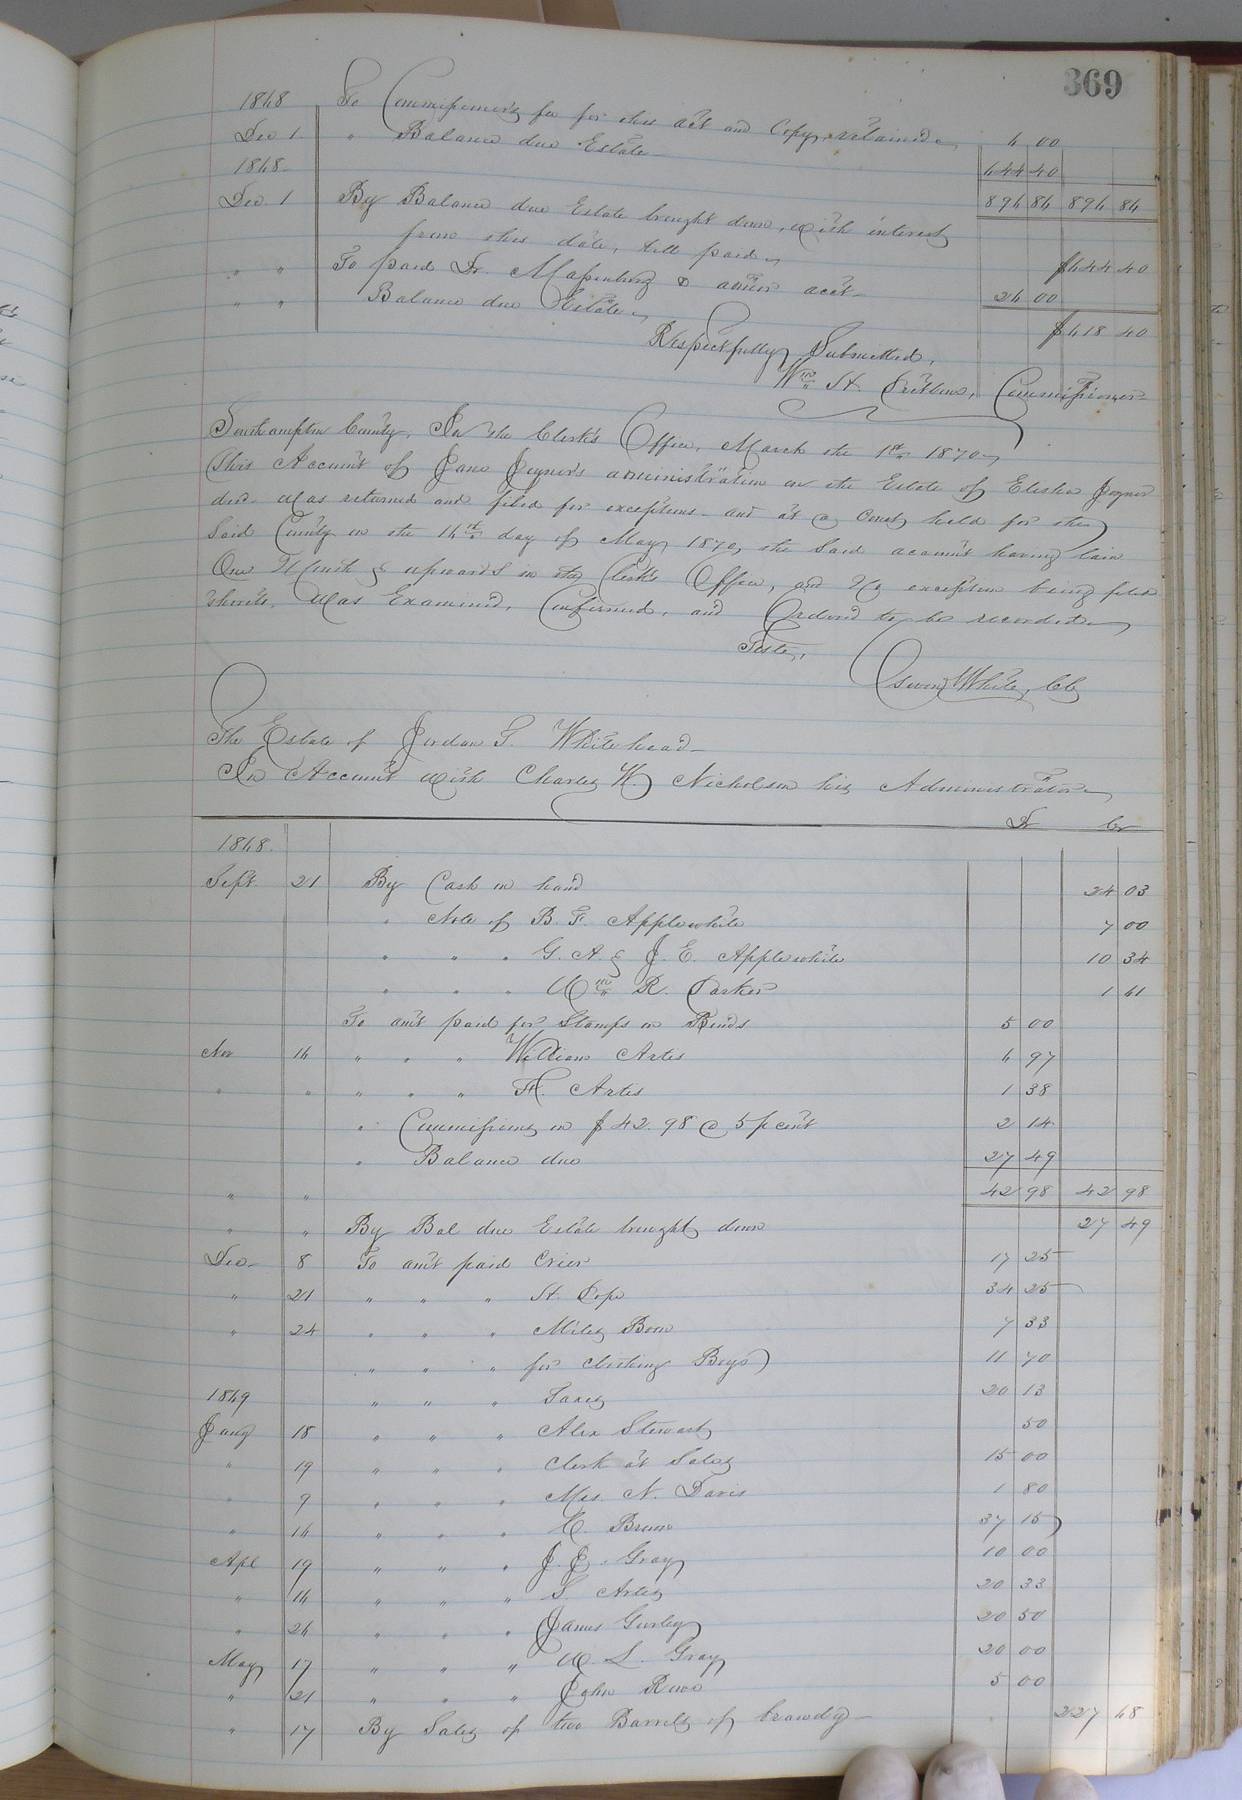 369
1868 To Commissioner's fee for this act and Copy retained 6 00
Dec 1. " Balance due Estate 644 40
1868 894 84 894 84
Dec. 1 By Balance due Estate brought down, with interest
from this date, till paid $644 40
" " To paid Dr. Massenburg & acct 26 00
" " Balance due Estate $618 40
Respectfully Submitted,
Wm H. Commissioner
Southampton County, In the Clerk's Office, March the 1st 1870
This Account of Jane Joyner's administration on the Estate of Elisha Joyner
decd. was returned and filed for exceptions and at a Court held for the
Said County on the 16th day of May 1870, the Said account having lain
One Month & upwards in the Clerk's Office, and No exception being filed
thereto, Was Examined, Confirmed, and Ordered to be recorded
Teste,
White, Clk
The Estate of Jordan T. Whitehead
In Account with Charles H. Nicholson his Administrator
Dr Cr
1868.
Sept. 21 By Cash on hand 24 03
" Note of B. F. Applewhite 7 00
" " " G. A. & J. E. Applewhite 10 34
" " " Wm R. Parker 1 61
To amt paid for Stamps on Bonds 5 00
Nov 16 " " " William Artis 6 97
" " " " " H. Artis 1 38
" Commissions on $42.98 @ 5 p cent 2 14
" Balance due 27 49
" " 42 98 42 98
" " By Bal due Estate brought down 27 49
Dec 8 To amt paid Crier 17 25
" 21 " " " H. Pope 34 25
" 24 " " " Miles Boon 7 33
" " " for clothing Boys 11 70
1869 " " " Taxes 20 13
Jany 18 " " " Alex Stewart 50
" 19 " " " Clerk at Sales 15 00
" 9 " " " Mrs. N. Davis 1 80
" 16 " " " Brown 37 15
Apl 19 " " " J. J. Gray 10 00
" 16 " " " T. Artis 20 33
" 26 " " " James Gurley 20 50
May 17 " " " W. L. Gray 20 00
" 21 " " " John 5 00
" 17 By Sales of two Barrels of brandy 227 68